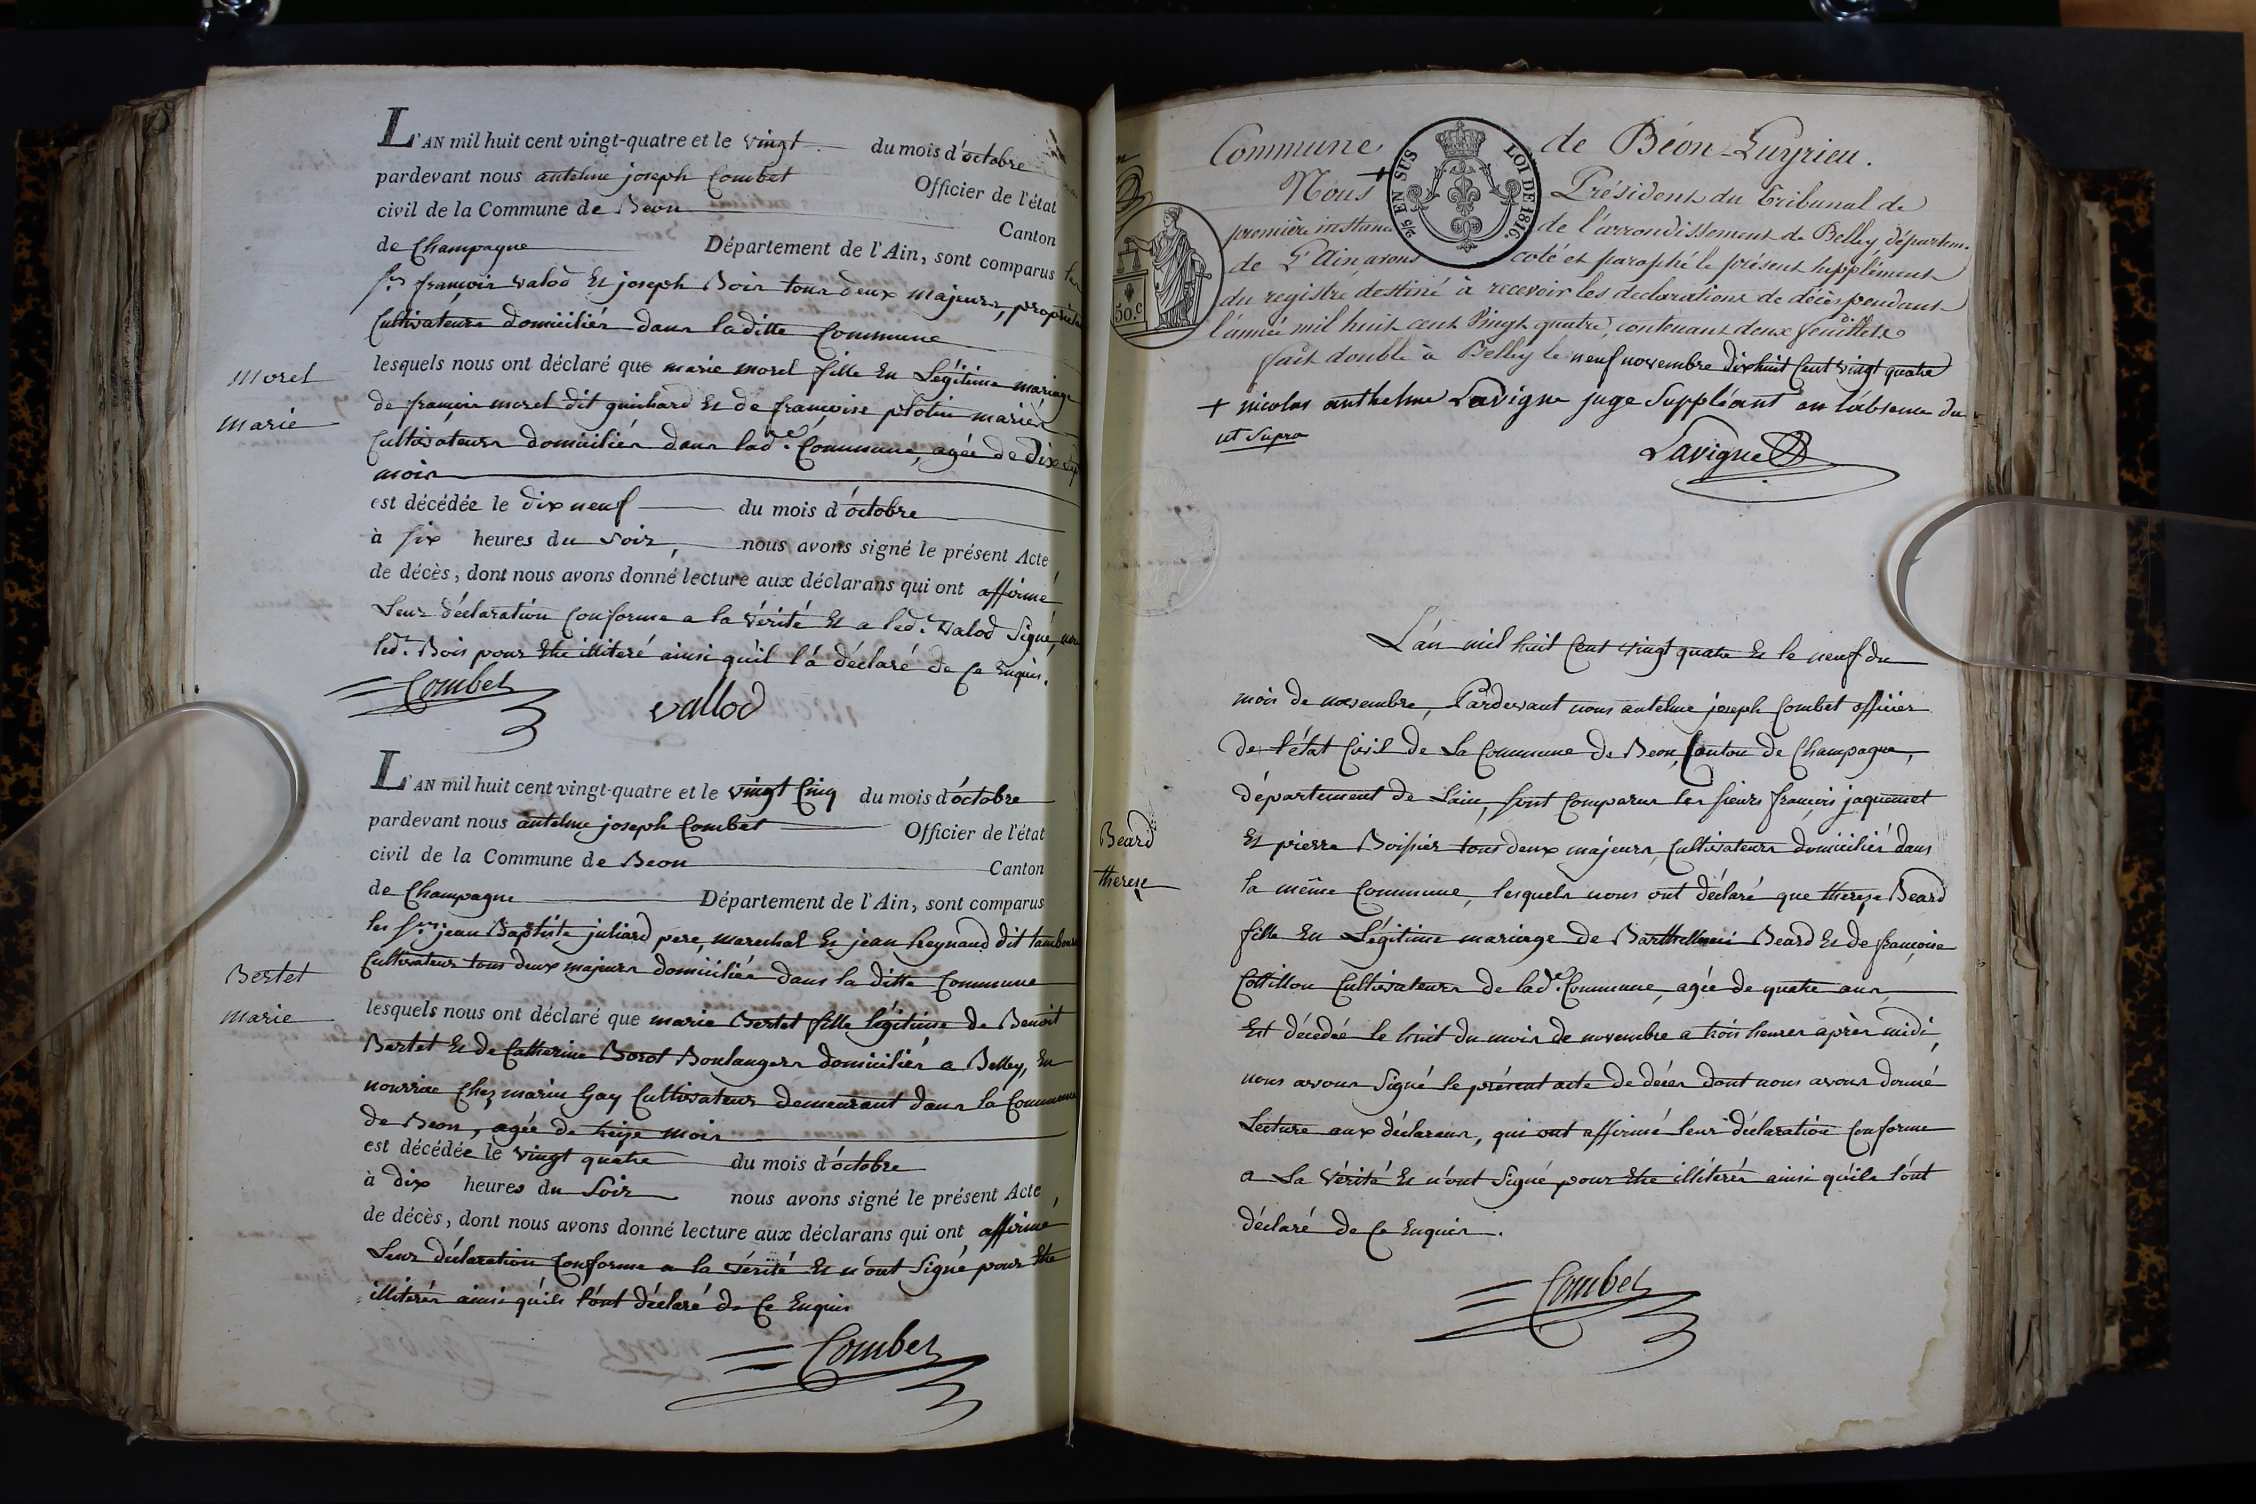 L'AN mil huit cent vingt-quatre et le vingt du mois d'octobre
pardevant nous antelme joseph Combet Officier de l'état
civil de la Commune de Beon Canton
de Champagne Département de l'Ain, sont comparus les
srs françois valod Et joseph Bois tous deux majeurs,
Cultivateurs domiciliés dans laditte Commune
Morel
Marie
lesquels nous ont déclaré que marie morel fille En Légitime mariage
de françois morel dit guichard Et de françoise mariés
Cultivateurs domiciliés dans lade. Commune, agée de Dix sept
mois
est décédée le dix neuf du mois d'octobre
à six heures du soir, nous avons signé le présent Acte
de décès, dont nous avons donné lecture aux déclarans qui ont affirmé
Leur déclaration Conforme a la vérité Et a led. valod Signé, non
led. Bois pour Etre illiteré ainsi qu'il l'a déclaré de Ce Enquis.
Combet
vallod
L'AN mil huit cent vingt-quatre et le vingt Cinq du mois d'octobre
pardevant nous antelme joseph Combet Officier de l'état
civil de la Commune de Beon Canton
de Champagne Département de l'Ain, sont comparus
les srs jean Baptiste juliard pere, marechal Et jean Reynaud dit tambour
Cultivateur tous deux majeurs domiciliés dans la ditte Commune
Bertet
Marie
lesquels nous ont déclaré que marie Bertet fille légitime de Benoit
Bertet Et de Catherine Borot Boulangers domiciliés a Belley, En
nourrice Chez marin Gay Cultivateur demeurant dans la Commune
de Beon, agée de treize mois
est décédée le vingt quatre du mois d'octobre
à dix heures du Soir nous avons signé le présent Acte,
de décès, dont nous avons donné lecture aux déclarans qui ont affirmé
Leur déclaration Conforme a la vérité Et n'ont Signé pour Etre
illiterés ainsi qu'ils l'ont déclaré de Ce Enquis
Combet
Commune de Béon-Luyrieu.
2/5 EN SUS LOI DE 1816.
50.c
Nous + Président du Tribunal de
première instance de l'arrondissement de Belley départem.
de L'Ain avons coté et paraphé le présent supplément
du registre destiné à recevoir les declarations de décès pendant
l'année mil huit cent Vingt quatre, contenant deux feuillets
fait double à Belley le neuf novembre dixhuit Cent vingt quatre
+ nicolas anthelme Lavigne juge Suppléant en l'absence du
ut Supra
Lavigne
L'an mil huit Cent vingt quatre Et le neuf du
mois de novembre, Pardevant nous antelme joseph Combet officier
de l'état Civil de La Commune de Beon, Canton de Champagne,
département de Lain, sont Comparus les sieurs françois jaquemet
Et pierre Boissier tous deux majeurs, Cultivateurs domiciliés dans
Beard
therese
la même Commune, lesquels nous ont déclaré que therese Beard
fille En Légitime mariage de Barthelemi Beard Et de françoise
Cottillon Cultivateurs de lade. Commune, agée de quatre ans,
Est décedée le huit du mois de novembre a trois heures après midi,
nous avons Signé le présent acte de décès dont nous avons donné
Lecture aux déclarans, qui ont affirmé leur déclaration Conforme
a La vérité Et n'ont Signé pour Etre illiterés ainsi qu'ils l'ont
déclaré de Ce Enquis.
Combet